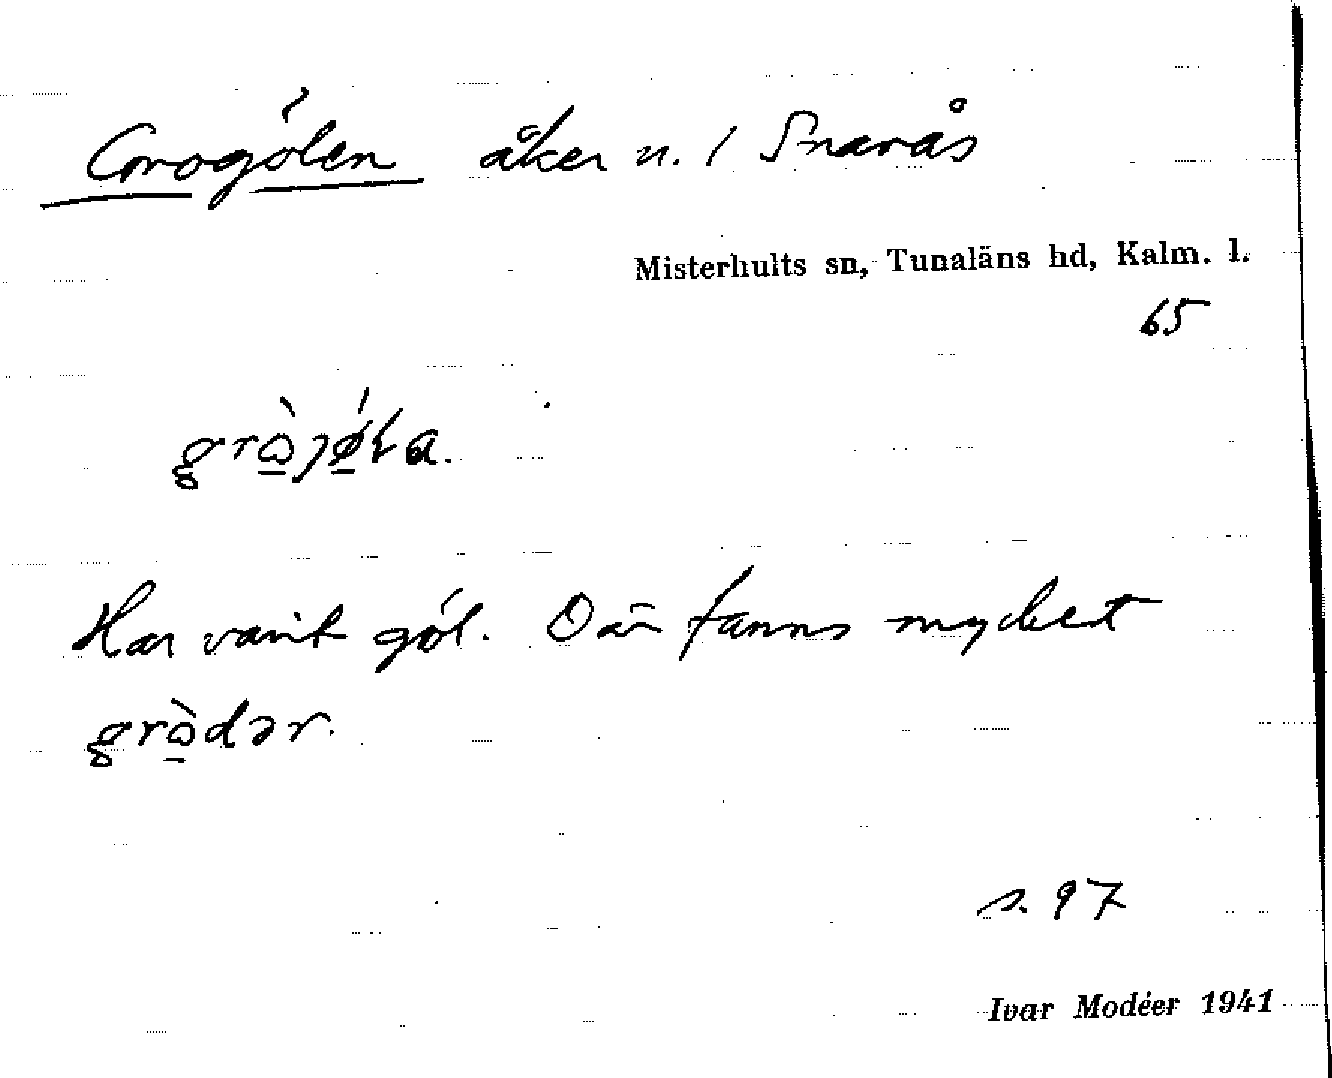 Grogölen åker n. / Snarås
Misterhults sn, Tunaläns hd, Kalm. l.
65
Har varit göl. Där fanns mycket
grodər.
s. 97
Ivar Modéer 1941